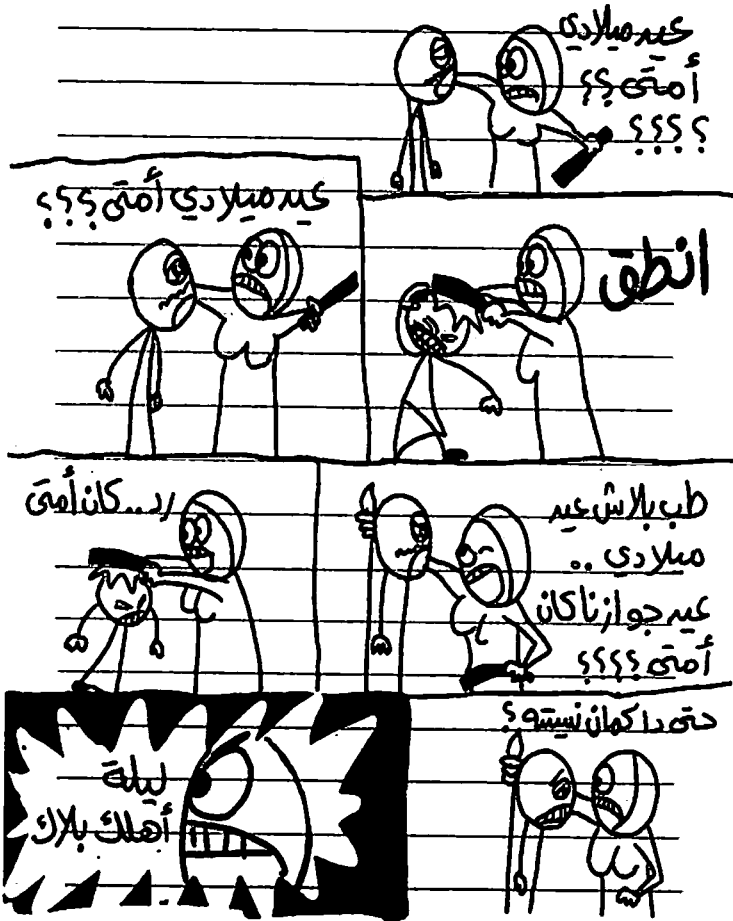 عيد ميلادي
أمتى ؟؟
؟ ؟ ؟ ؟
انطق
عيد ميلادي أمتى ؟ ؟ ؟
طب بلاش عيد
ميلادي ..
عيد جوازنا كان
أمتى ؟ ؟ ؟ ؟
رد .. كان أمتى
حتى دا كمان نسيته ؟
ليلة
أهلك بلاك